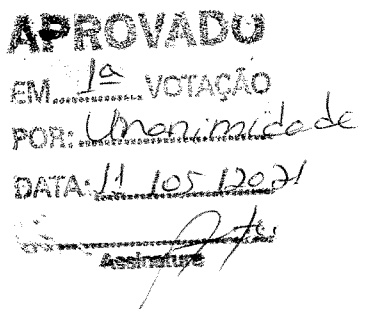 APROVADO
EM 1ª VOTAÇÃO
POR: Unanimidade
DATA: 11 / 05 / 2021
Assinatura